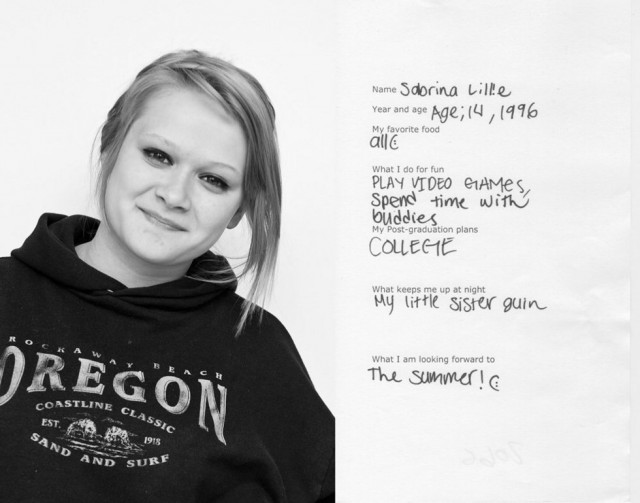 ROCKAWAY BEACH
OREGON
COASTLINE CLASSIC
EST. 1918
SAND AND SURF
Name Sabrina Lillie
Year and age Age; 14, 1996
My favorite food
all (:
What I do for fun
PLAY VIDEO GAMES,
Spend time with
buddies
My Post-graduation plans
COLLEGE
What keeps me up at night
My little sister quin
What I am looking forward to
The summer! (: